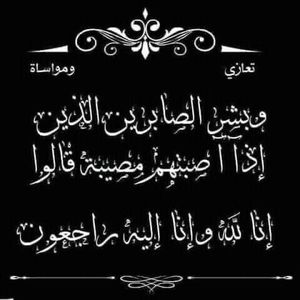 تعازي ومواساة
وبشر الصابرين الذين
إذا أصبتهم مصيبة قالوا
إنا لله وإنا إليه راجعون